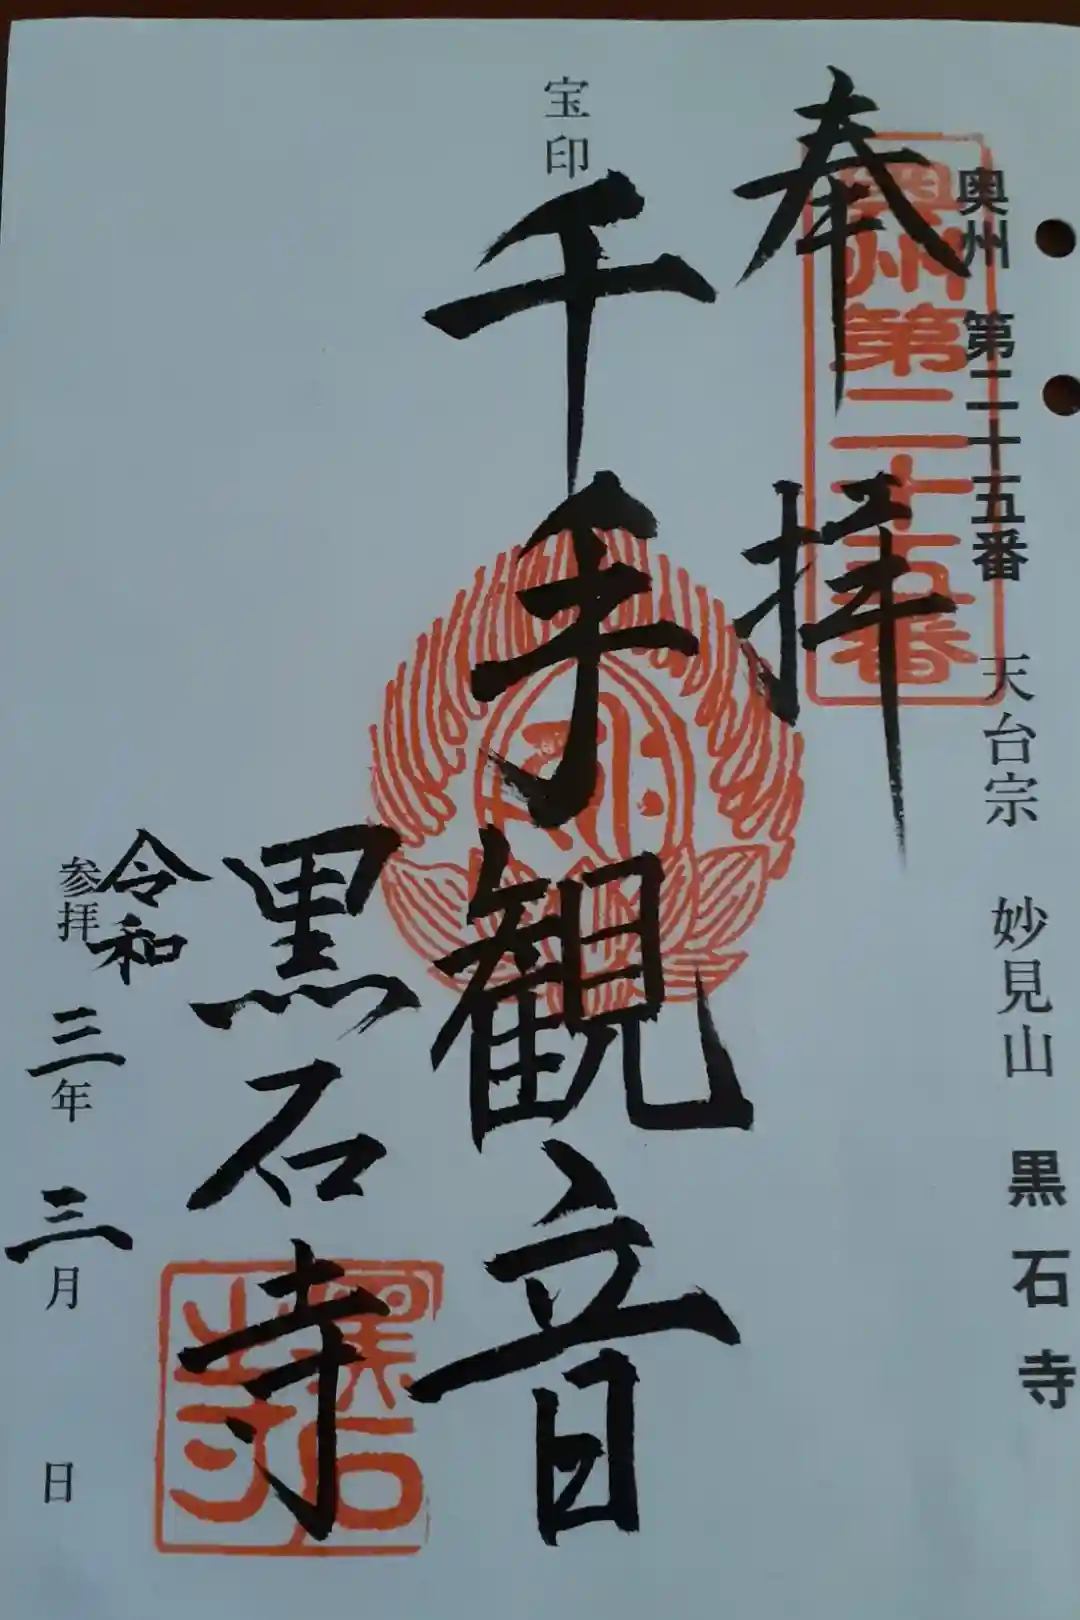 奥州 第二十五番 天台宗 妙見山 黒石寺
奥州第二十五番
奉拝
宝印
千手観音
黒石寺
黒石寺
参拝 令和三年 三月 日